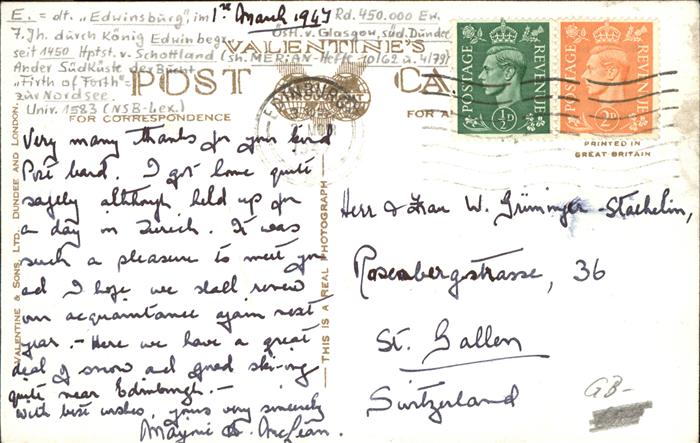 E. = dt. „Edwinsburg", im
7. Jh. durch König Edwin begr.
seit 1450 Hptst. v. Schottland (sh. MERIAN-Hefte 10/62 u. 4/79)
An der Südküste der Bucht
„Firth of Forth"-
zur Nordsee
Univ. 1583 (NSB-Lex.)
Rd. 450.000 Ew.
Östl. v. Glasgow, süd. Dundee
1st March 1947
VALENTINE'S
POST CA
FOR CORRESPONDENCE
FOR A
EDINBURGH
Very many thanks for your kind
Post card. I got home quite
safely although held up for
a day in Zurich. It was
such a pleasure to meet you
and I hope we shall renew
our acquaintance again next
year. - Here we have a great
deal of snow and good ski-ing
quite near Edinburgh. -
With best wishes, yours very sincerely
McLean.
VALENTINE & SONS, LTD. DUNDEE AND LONDON.
THIS IS A REAL PHOTOGRAPH
POSTAGE REVENUE
½D
POSTAGE REVENUE
2D
PRINTED IN
GREAT BRITAIN
Herr & Frau W. Grüninger-Staehelin,
Rosenbergstrasse, 36
St. Gallen
Switzerland
GB-